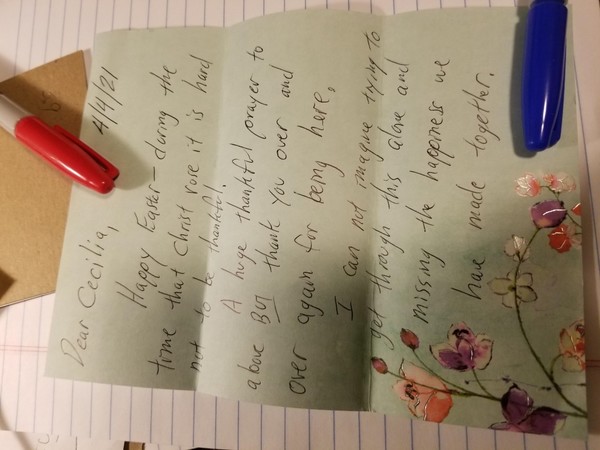 4/4/21
Dear Cecilia,
Happy Easter – during the
time that Christ rose it is hard
not to be thankful.
A huge thankful prayer to
above BUT thank you over and
over again for being here,
I can not imagine trying to
get through this alone and
missing the happiness we
have made together.